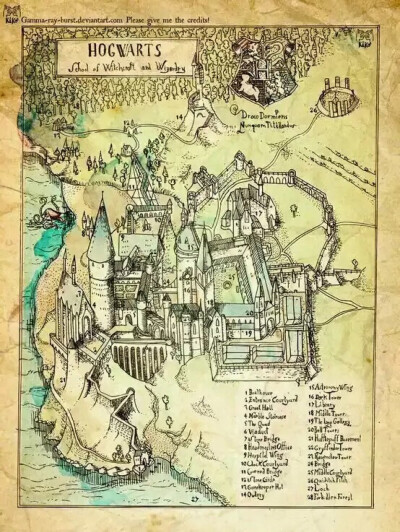 Gamma-ray-burst.deviantart.com Please give me the credits!
HOGWARTS
School of Witchcraft and Wizardry
Draco Dormiens
Nunquam Titillandus
1 Boathouse
2 Entrance Courtyard
3 Great Hall
4 Marble Staircase
5 The Quad
6 Viaduct
9 Hospital Wing
10 Clock Courtyard
11 Covered Bridge
12 Stone Circle
14 Owlery
15 Astronomy Wing
16 Dark Tower
17 Library
18 Middle Tower
19 The Long Gallery
20 Bell Towers
21 Hufflepuff Basement
22 Gryffindor Tower
23 Ravenclaw Tower
24 Bridge
25 Middle Courtyard
26 Quidditch Pitch
27 Loch
28 Forbidden Forest